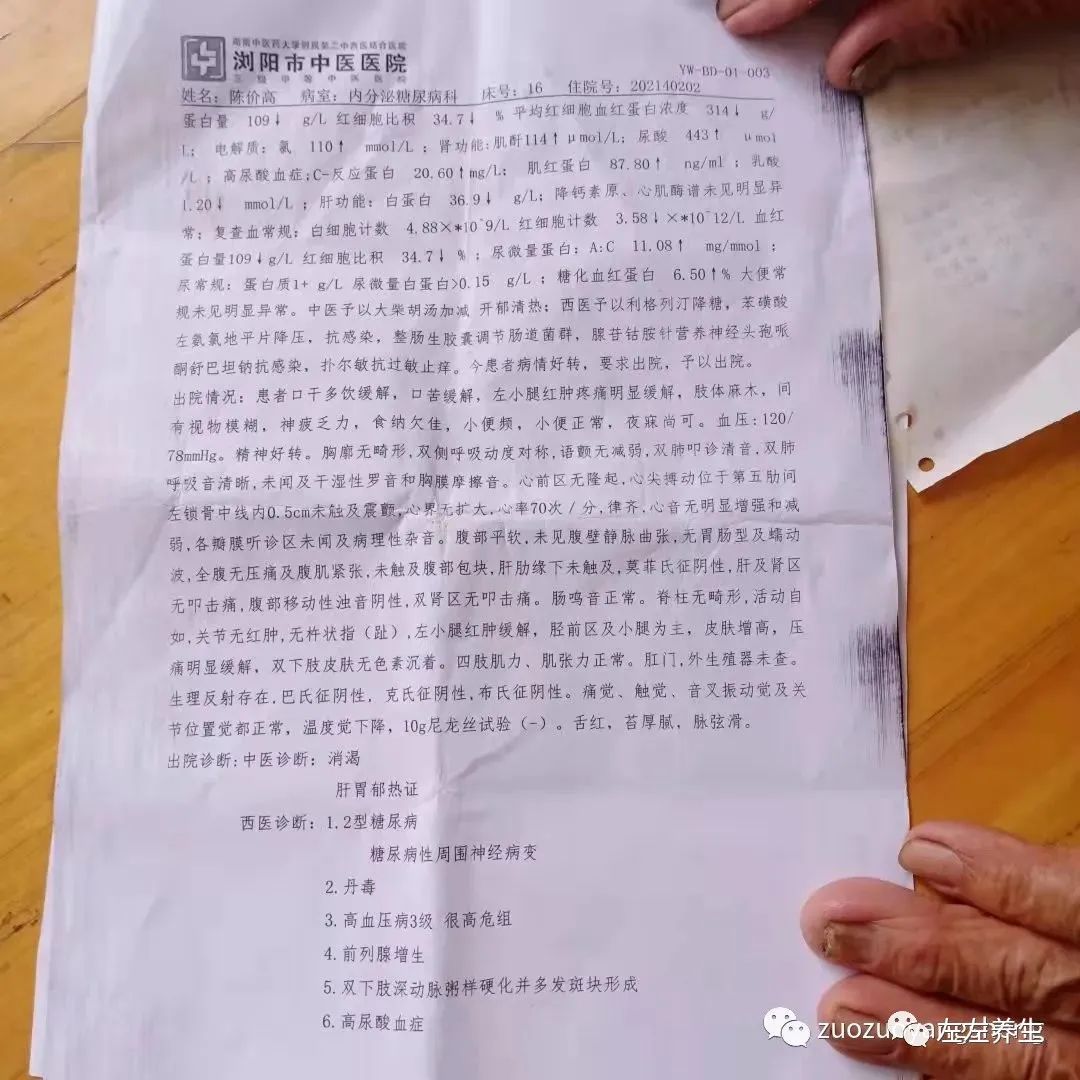 湖南中医药大学附属第二中西医结合医院
浏阳市中医医院
三级甲等中医医院
YW-BD-01-003
姓名：陈价高 病室：内分泌糖尿病科 床号：16 住院号：202140202
蛋白量 109↓ g/L 红细胞比积 34.7↓ % 平均红细胞血红蛋白浓度 314↓ g/
L; 电解质：氯 110↑ mmol/L；肾功能:肌酐114↑μmol/L; 尿酸 443↑ μmol
/L；高尿酸血症;C-反应蛋白 20.60↑mg/L; 肌红蛋白 87.80↑ ng/ml；乳酸
1.20↓ mmol/L；肝功能：白蛋白 36.9↓ g/L; 降钙素原、心肌酶谱未见明显异
常；复查血常规：白细胞计数 4.88×*10^9/L 红细胞计数 3.58↓×*10^12/L 血红
蛋白量109↓g/L 红细胞比积 34.7↓ %；尿微量蛋白：A:C 11.08↑ mg/mmol；
尿常规：蛋白质1+ g/L 尿微量白蛋白>0.15 g/L；糖化血红蛋白 6.50↑% 大便常
规未见明显异常。中医予以大柴胡汤加减 开郁清热；西医予以利格列汀降糖，苯磺酸
左氨氯地平片降压，抗感染，整肠生胶囊调节肠道菌群，腺苷钴胺针营养神经头孢哌
酮舒巴坦钠抗感染，扑尔敏抗过敏止痒。今患者病情好转，要求出院，予以出院。
出院情况：患者口干多饮缓解，口苦缓解，左小腿红肿疼痛明显缓解，肢体麻木，间
有视物模糊，神疲乏力，食纳欠佳，小便频，小便正常，夜寐尚可。血压:120/
78mmHg。精神好转。胸廓无畸形,双侧呼吸动度对称,语颤无减弱,双肺叩诊清音,双肺
呼吸音清晰,未闻及干湿性罗音和胸膜摩擦音。心前区无隆起,心尖搏动位于第五肋间
左锁骨中线内0.5cm未触及震颤,心界无扩大,心率70次／分,律齐,心音无明显增强和减
弱,各瓣膜听诊区未闻及病理性杂音。腹部平软,未见腹壁静脉曲张,无胃肠型及蠕动
波,全腹无压痛及腹肌紧张,未触及腹部包块,肝肋缘下未触及,莫菲氏征阴性,肝及肾区
无叩击痛,腹部移动性浊音阴性,双肾区无叩击痛。肠鸣音正常。脊柱无畸形,活动自
如,关节无红肿,无杵状指（趾）,左小腿红肿缓解，胫前区及小腿为主，皮肤增高，压
痛明显缓解，双下肢皮肤无色素沉着。四肢肌力、肌张力正常。肛门,外生殖器未查。
生理反射存在,巴氏征阴性，克氏征阴性,布氏征阴性。痛觉、触觉、音叉振动觉及关
节位置觉都正常，温度觉下降，10g尼龙丝试验（-）。舌红，苔厚腻，脉弦滑。
出院诊断:中医诊断：消渴
肝胆郁热证
西医诊断：1.2型糖尿病
糖尿病性周围神经病变
2.丹毒
3.高血压病3级 很高危组
4.前列腺增生
5.双下肢深动脉粥样硬化并多发斑块形成
6.高尿酸血症
左左养生